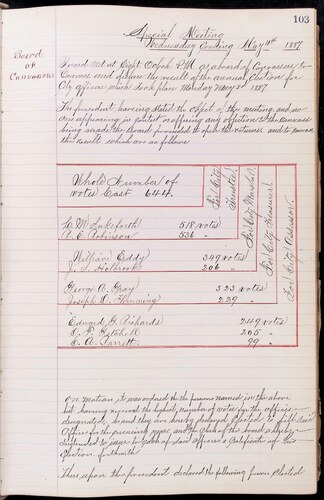 103
Special Meeting
Wednesday Evening May 4th 1887
Board
of
Canvassers
Board met at Eight Oclock P.M. as a board of Canvassers to
Canvass and declare the result of the annual Election for
City officers which took place Monday May 2nd 1887
The president having stated the object of the meeting and no
one appearing to protest or offering any objection to the canvass
being made the Board proceeded to open the returns and to canvass
the result which are as follows
Whole Number of
votes Cast 644
For City Trustee
For City Marshal
For City Treasurer
For City Assessor
518 votes
A. E. Robinson 536 "
William Eddy 349 votes
J. L. Holbrook 206 "
George A. Gray 323 votes
Joseph D. 229 "
Edward G. Richards 249 votes
205 "
99 "
On motion it was ordered that the persons named in the above
list having received the highest number of votes for the offices
designated, and they are hereby declared Elected to fill said
Offices for the ensuing year and the clerk of the board is hereby
instructed to issue to each of said officers a Certificate of his
Election forthwith
Thereupon the president declared the following persons Elected